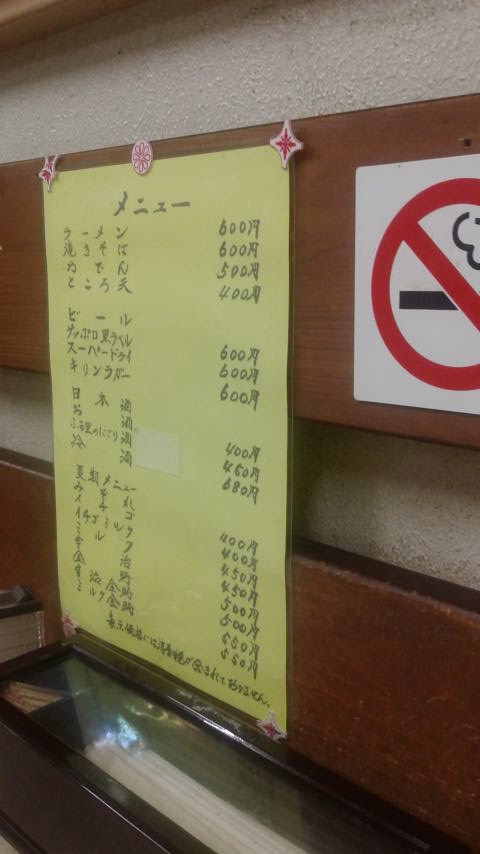 メニュー
ラーメン 600円
焼きそば 600円
おでん 500円
ところ天 400円
ビール
サッポロ黒ラベル 600円
スーパードライ 600円
キリンラガー 600円
日本酒
お酒 400円
ふる里のにごり酒 450円
冷酒 680円
夏期メニュー
みぞれ 400円
イチゴ 400円
イチゴミルク 450円
ミルク 450円
宇治 500円
金時 500円
宇治金時 550円
ミルク金時 550円
表示価格には消費税が含まれておりません。